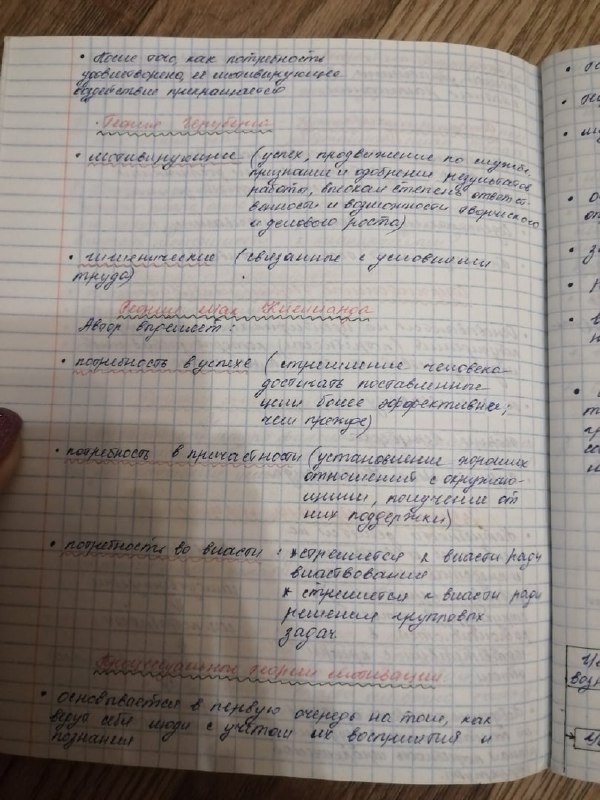 • После того, как потребность
удовлетворена, её мотивирующее
воздействие прекращается
• Теория Герцберга
• мотивирующие (успех, продвижение по службе,
признание и одобрение результатов
работы, высокая степень ответст-
венности и возможности творческого
и делового роста)
• гигиенические (связанные с условиями
труда)
Теория Мак Клелланда
Автор выделяет:
• потребность в успехе (стремление человека
достигать поставленные
цели более эффективнее,
чем прежде)
• потребность в причастности (установление хороших
отношений с окружаю-
щими, получении от
них поддержки)
• потребность во власти: * стремится к власти ради
властвования
* стремится к власти ради
решения групповых
задач
Процессуальные теории мотивации
• основывается в первую очередь на том, как
ведут себя люди с учётом их восприятия и
познания